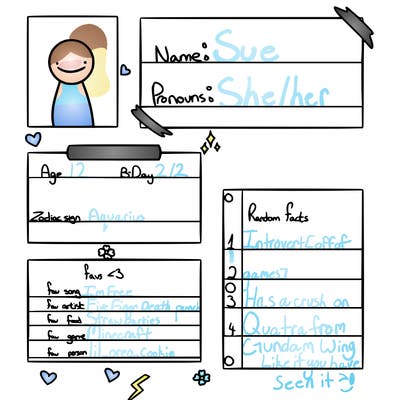 Name: Sue
Pronouns: She/her
Age 17 B-Day 2/2
Zodiac sign Aquarius
Favs <3
fav song I'm Free
fav artist Five Finger Death punch
fav food Straw
fav game Minecraft
fav person lil oreo cookie
Random facts
1 Introvert
2 games
3 Has a crush on
4 Quatra from
Gundam Wing
Like if you have
Seen it